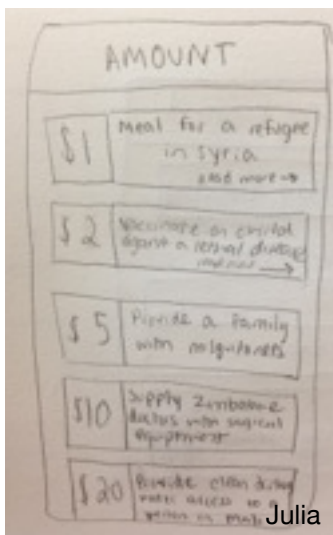 AMOUNT
$1
Meal for a refugee
in Syria
read more →
$2
Vaccinate a child
against a disease
read more →
$5
Provide a family
with mosquito nets
$10
Supply Zimbabwe
doctors with surgical
equiptment
$20
Provide clean
water access to a
person in
Julia